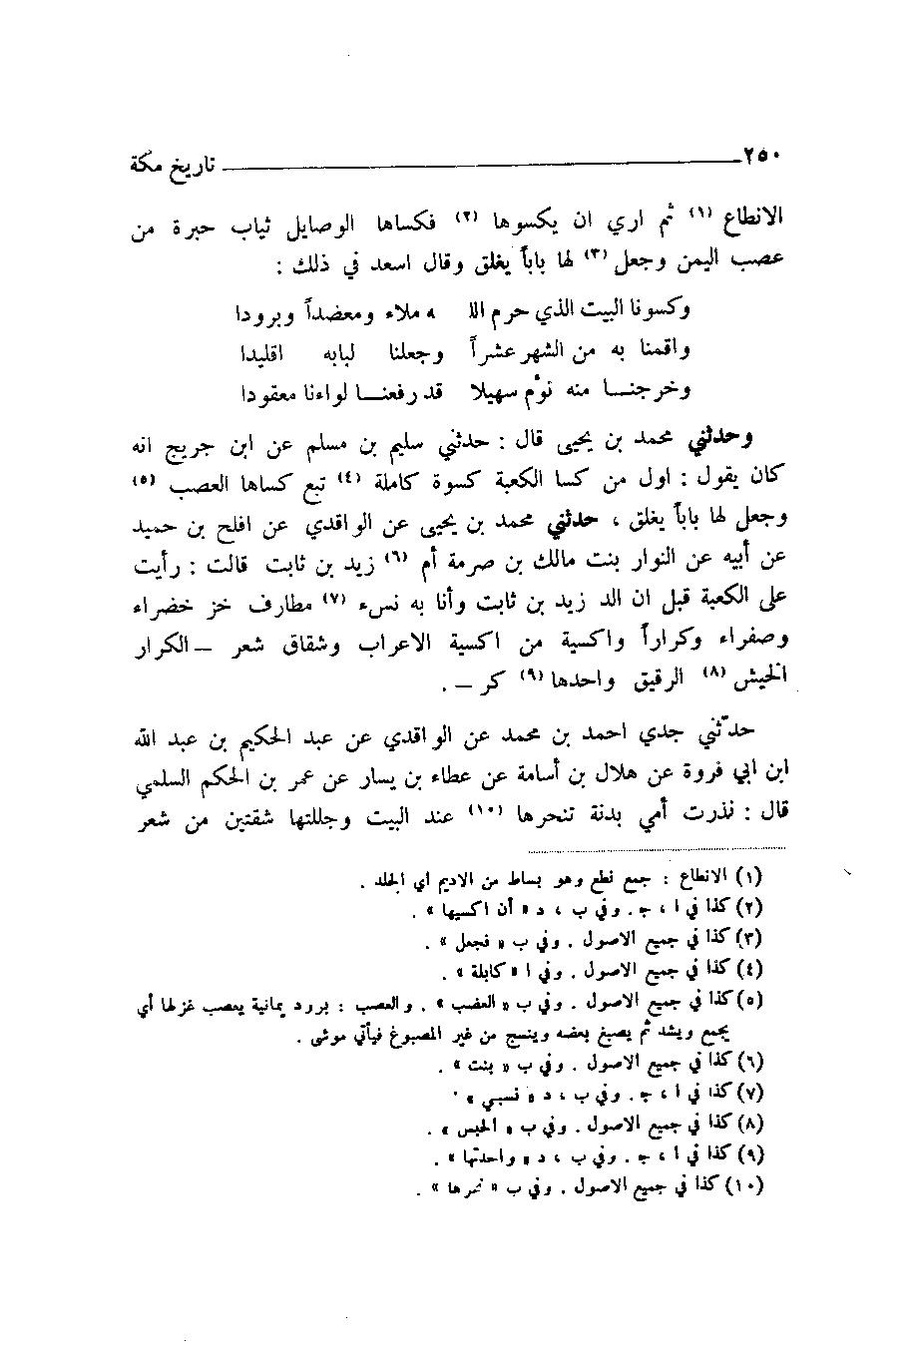 ٢٥٠ تاريخ مكة
الانطاع (١) ثم اري ان يكسوها (٢) فكساها الوصايل ثياب حبرة من
عصب اليمن وجعل (٣) لها باباً يغلق وقال اسعد في ذلك :
وكسونا البيت الذي حرم اللـ ـه ملاء ومعضداً وبرودا
واقمنا به من الشهر عشراً وجعلنا لبابه اقليدا
وخرجنـــا منه نؤم سهيلا قد رفعنـــا لواءنا معقودا
وحدثني محمد بن يحيى قال : حدثني سليم بن مسلم عن ابن جريج انه
كان يقول : اول من كسا الكعبة كسوة كاملة (٤) تبع كساها العصب (٥)
وجعل لها باباً يغلق ، حدثني محمد بن يحيى عن الواقدي عن افلح بن حميد
عن أبيه عن النوار بنت مالك بن صرمة أم (٦) زيد بن ثابت قالت : رأيت
على الكعبة قبل ان الد زيد بن ثابت وأنا به نسء (٧) مطارف خز خضراء
وصفراء وكراراً واكسية من اكسية الاعراب وشقاق شعر – الكرار
الخيش (٨) الرقيق واحدها (٩) كر – .
حدّثني جدي احمد بن محمد عن الواقدي عن عبد الحكيم بن عبد الله
ابن ابي فروة عن هلال بن أسامة عن عطاء بن يسار عن عمر بن الحكم السلمي
قال : نذرت أمي بدنة تنحرها (١٠) عند البيت وجللتها شقتين من شعر
(١) الانطاع : جمع نطع وهو بساط من الاديم أي الجلد .
(٢) كذا في ا ، ج . وفي ب ، د « أن اكسيها » .
(٣) كذا في جميع الاصول . وفي ب « فجعل » .
(٤) كذا في جميع الاصول . وفي ا « كابلة » .
(٥) كذا في جميع الاصول . وفي ب « العضب » . والعصب : برود يمانية يعصب غزلها أي
يجمع ويشد ثم يصبغ بعضه وينسج من غير المصبوغ فيأتي موشى .
(٦) كذا في جميع الاصول . وفي ب « بنت » .
(٧) كذا في ا ، ج . وفي ب ، د « نسبي » .
(٨) كذا في جميع الاصول . وفي ب « الحبس » .
(٩) كذا في ا ، ج . وفي ب ، د « واحدتها » .
(١٠) كذا في جميع الاصول . وفي ب « نحرها » .